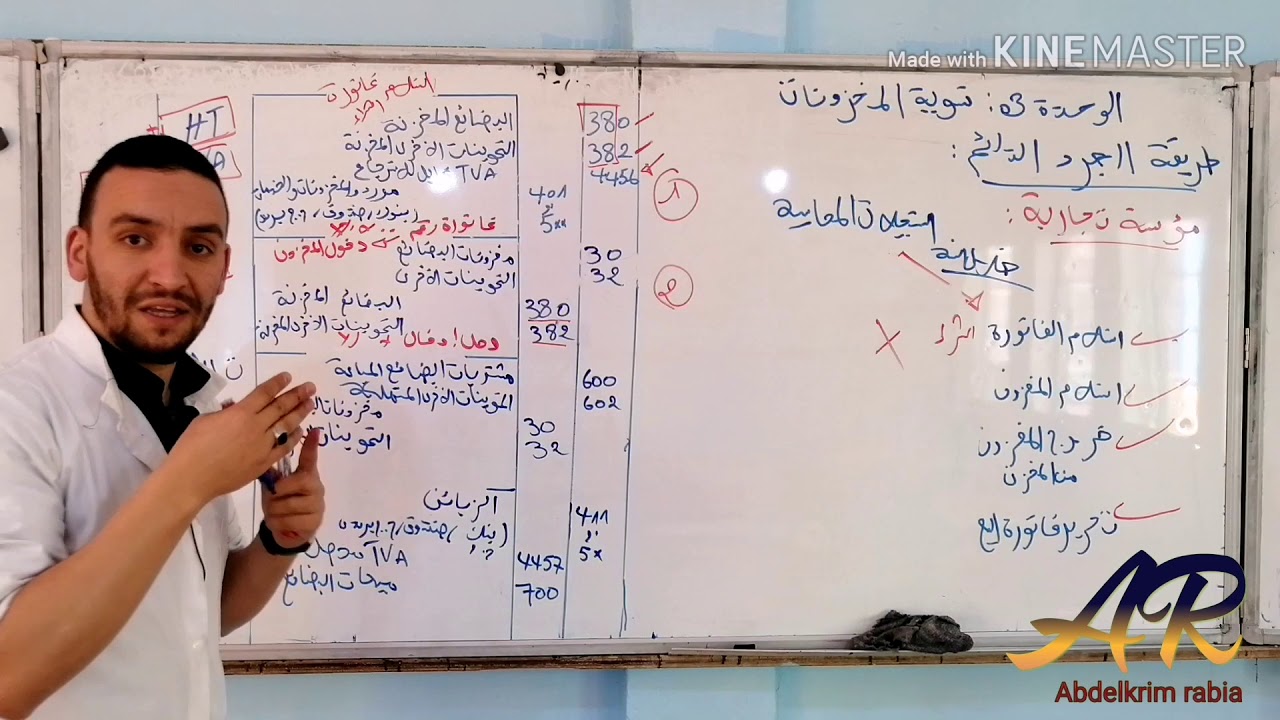 Made with KINEMASTER
الوحدة 03: تسوية المخزونات
طريقة الجرد الدائم:
مؤسسة تجارية:
التسجيلات المحاسبية
استلام الفاتورة شراء
استلام المخزون
خروج المخزون
من المخزن
تحرير فاتورة البيع
HT
استلام فاتورة
شراء
380 البضائع المخزنة
382 التموينات الأخرى المخزنة
4456 TVA قابلة للاسترجاع
401 موردو المخزونات والخدمات
5** (بنوك / صندوق / ح.ج بريد)
فاتورة رقم
30 مخزونات البضائع دخول المخزون
32 التموينات الأخرى
380 البضائع المخزنة
382 التموينات الأخرى المخزنة
وصل إدخال
600 مشتريات البضائع المباعة
602 التموينات الأخرى المستهلكة
30 مخزونات
32 التموينات
411 الزبائن
5* (بنك / صندوق / ح.ج بريد)
4457 TVA
700 مبيعات البضائع
1
2
AR
Abdelkrim rabia